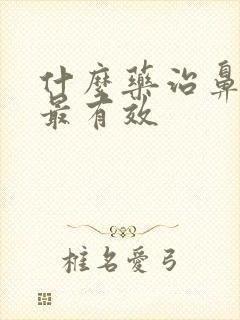 什麼藥治鼻
最有效
椎名愛弓